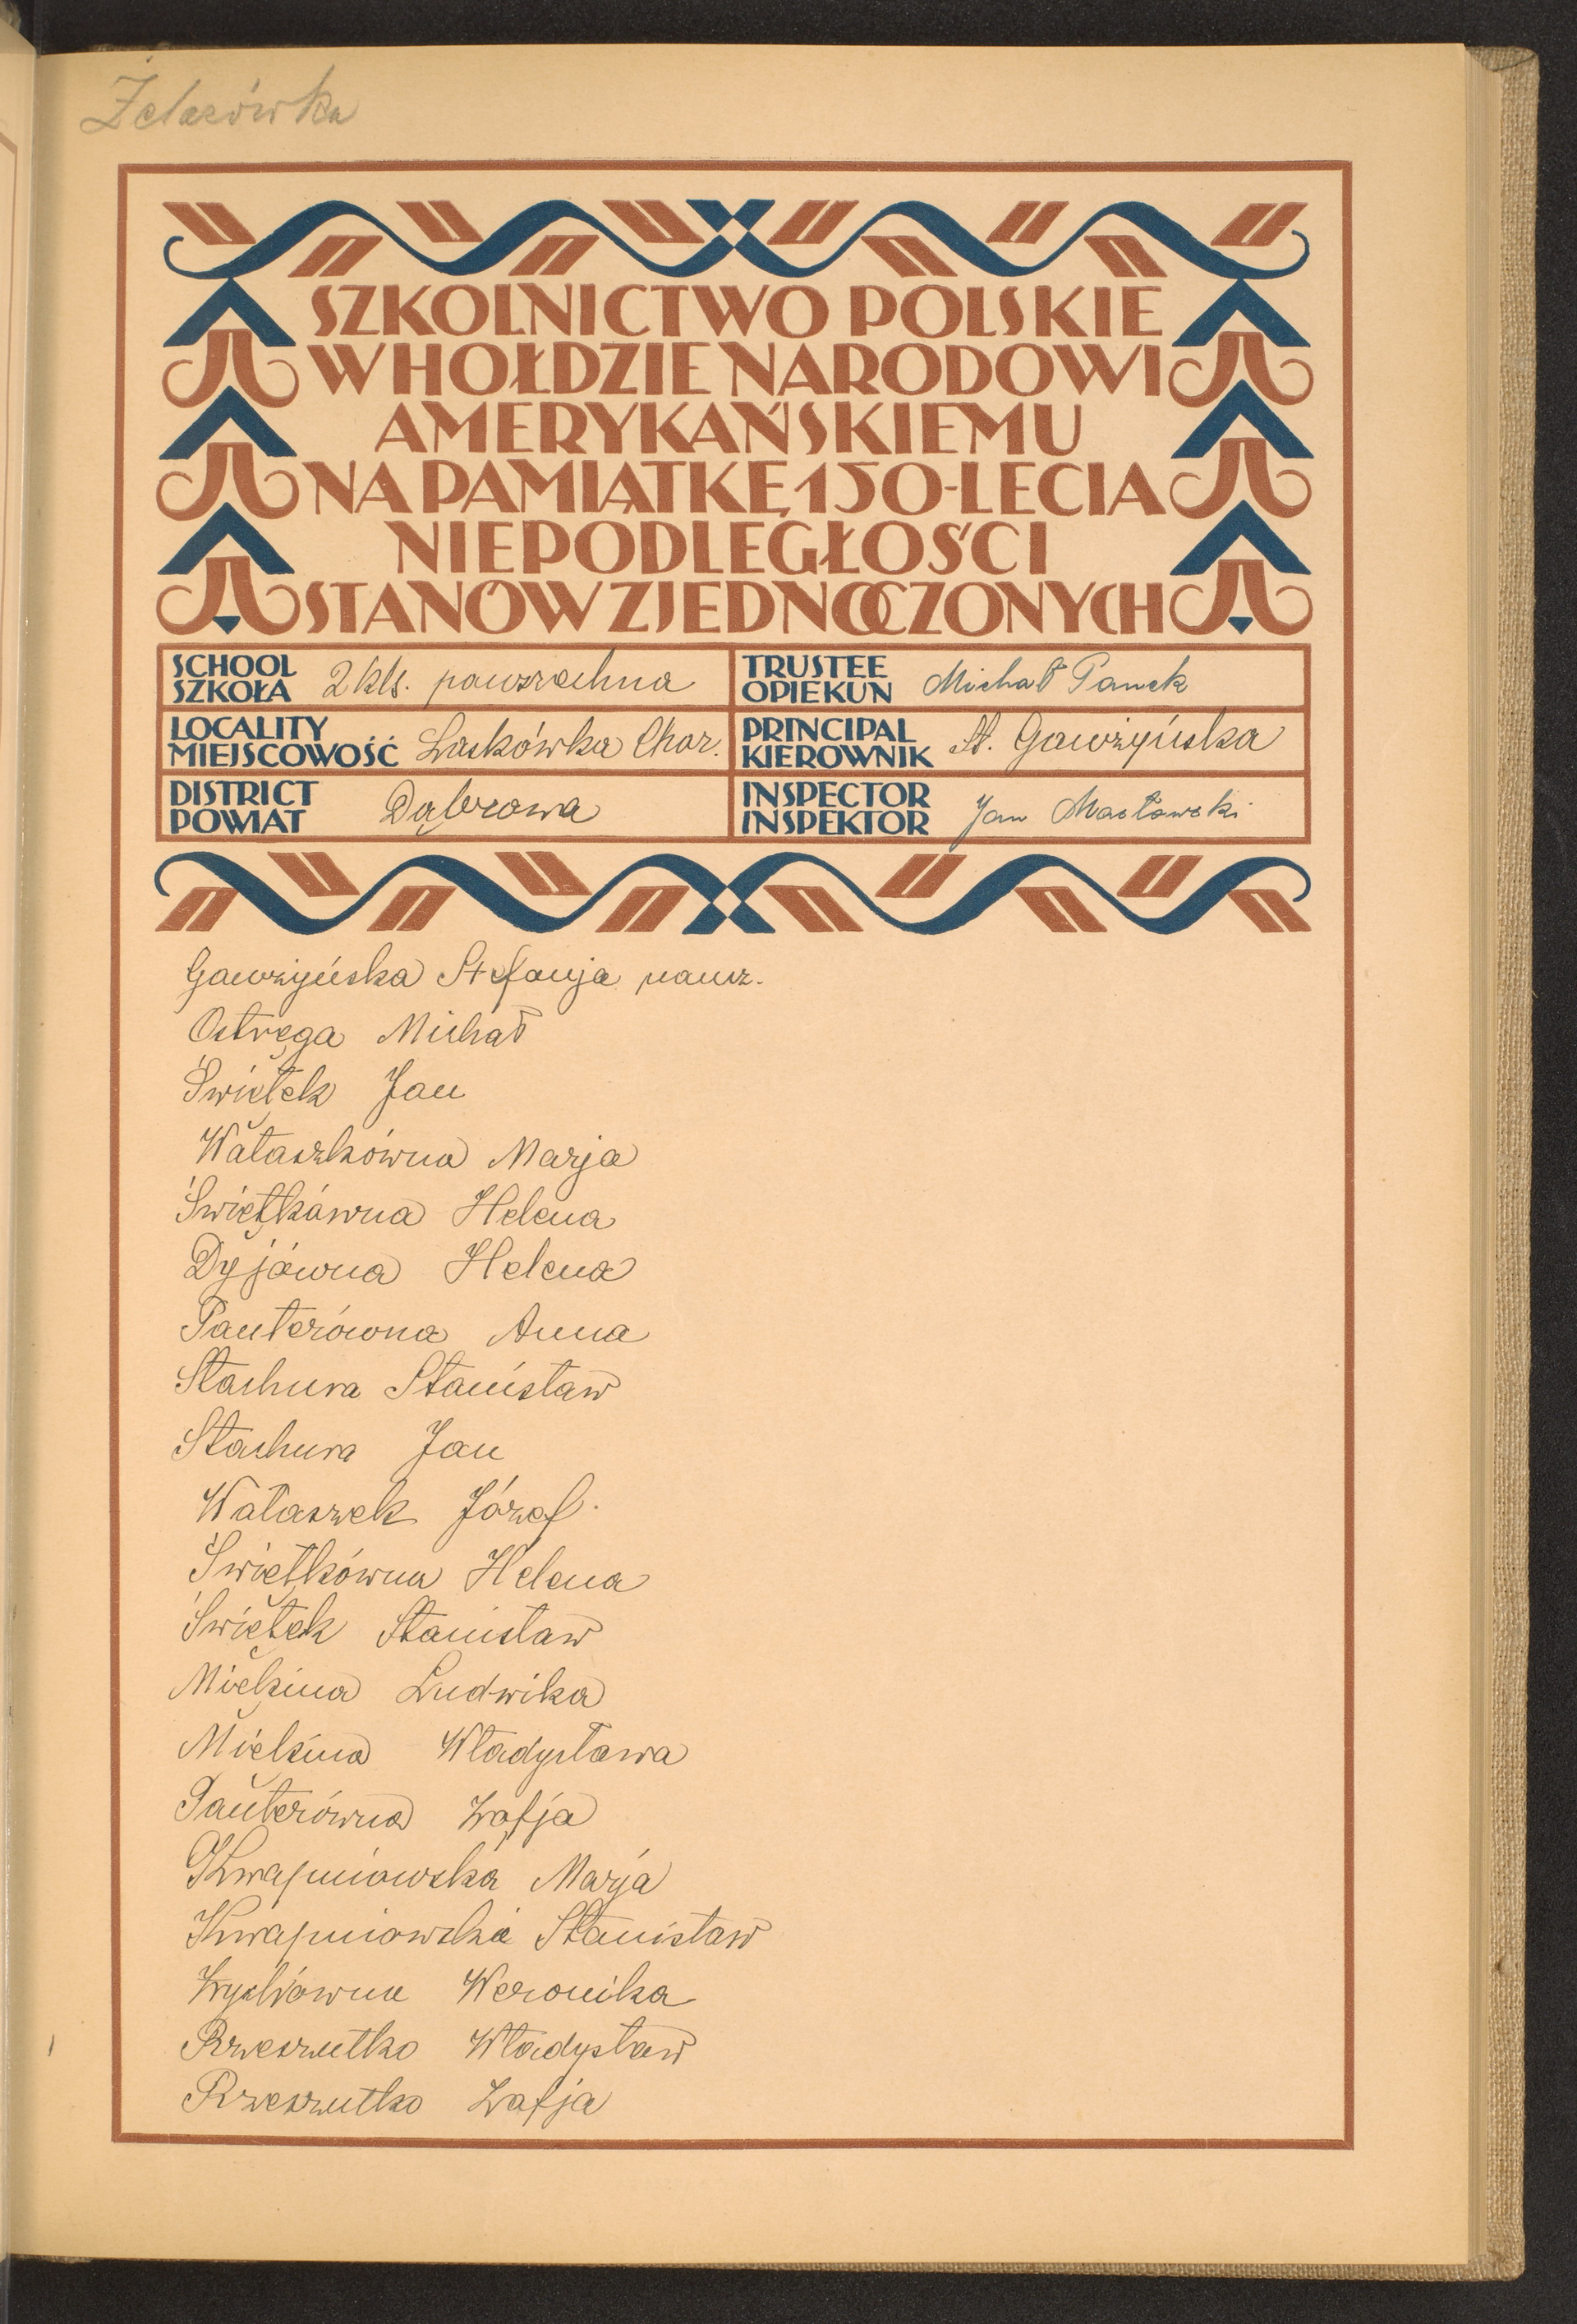 Żelazówka
SZKOLNICTWO POLSKIE
W HOŁDZIE NARODOWI
AMERYKAŃSKIEMU
NA PAMIĄTKĘ 150-LECIA
NIEPODLEGŁOŚCI
STANÓW ZJEDNOCZONYCH
SCHOOL
SZKOŁA 2 kls. powszechna
TRUSTEE
OPIEKUN Michał Panek
LOCALITY
MIEJSCOWOŚĆ Laskówka Chor.
PRINCIPAL
KIEROWNIK St. Gawżyńska
DISTRICT
POWIAT Dąbrowa
INSPECTOR
INSPEKTOR Jan Masławski
Gawżyńska Stefanja naucz.
Ostręga Michał
Świętek Jan
Wałaszkówna Marja
Świętkówna Helena
Dyjówna Helena
Panterówna Anna
Stachura Stanisław
Stachura Jan
Wałaszek Józef
Świętkówna Helena
Świętek Stanisław
Miękina Ludwika
Miękina Władysława
Panterówna Zofja
Kwapniowska Marja
Kwapniowski Stanisław
Weronika
Rzeszutko Władysław
Rzeszutko Zofja